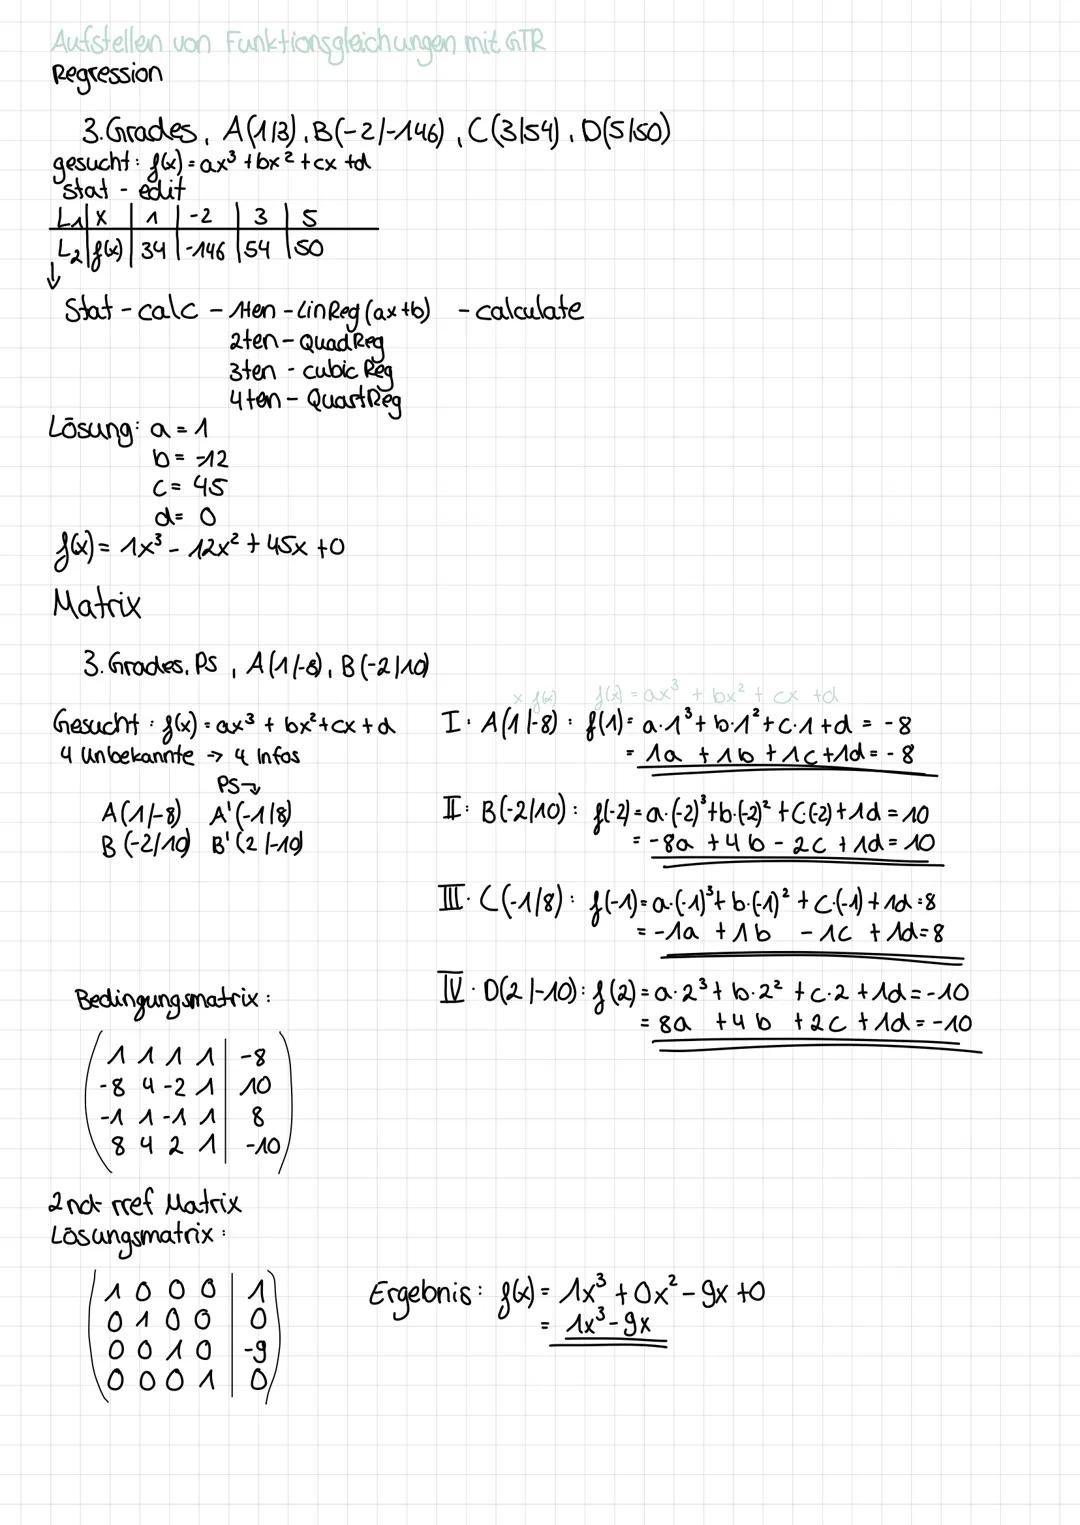 Aufstellen von Funktionsgleichungen mit GTR
Regression
3. Grades, A(1|3), B(-2|-146), C(3|54), D(5|50)
gesucht: f(x) = ax³ + bx² + cx + d
stat - edit
L₁ | x | 1 | -2 | 3 | 5
L₂ | f(x) | 34 | -146 | 54 | 50
↓
Stat - calc - 1ten - LinReg (ax+b) - calculate
2ten - QuadReg
3ten - cubic Reg
4ten - QuartReg
Lösung: a = 1
b = -12
c = 45
d = 0
f(x) = 1x³ - 12x² + 45x + 0
Matrix
3. Grades, PS, A(1|-8), B(-2|10)
Gesucht: f(x) = ax³ + bx² + cx + d
4 Unbekannte → 4 Infos
PS
A(1|-8) A'(-1|8)
B(-2|10) B'(2|-10)
x f(x) f(x) = ax³ + bx² + cx + d
I: A(1|-8): f(1) = a·1³ + b·1² + c·1 + d = -8
= 1a + 1b + 1c + 1d = -8
II: B(-2|10): f(-2) = a·(-2)³ + b·(-2)² + c(-2) + 1d = 10
= -8a + 4b - 2c + 1d = 10
III: C(-1|8): f(-1) = a·(-1)³ + b·(-1)² + c·(-1) + 1d = 8
= -1a + 1b - 1c + 1d = 8
IV: D(2|-10): f(2) = a·2³ + b·2² + c·2 + 1d = -10
= 8a + 4b + 2c + 1d = -10
Bedingungsmatrix:
1 1 1 1 | -8
-8 4 -2 1 | 10
-1 1 -1 1 | 8
8 4 2 1 | -10
2nd rref Matrix
Lösungsmatrix:
1 0 0 0 | 1
0 1 0 0 | 0
0 0 1 0 | -9
0 0 0 1 | 0
Ergebnis: f(x) = 1x³ + 0x² - 9x + 0
= 1x³ - 9x